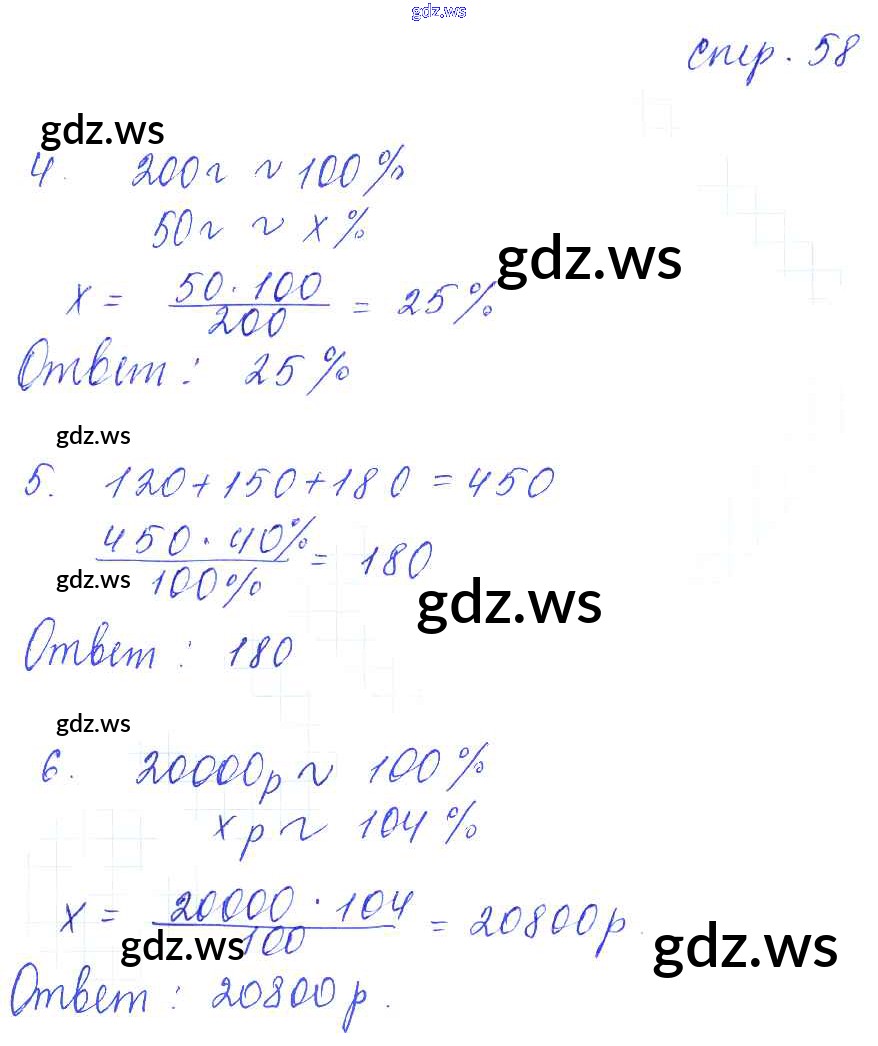 gdz.ws
стр. 58
gdz.ws
4. 200г ~ 100%
50г ~ x%
gdz.ws
x = 50·100/200 = 25%
Ответ: 25%
gdz.ws
5. 120+150+180=450
450·40%/100% = 180
gdz.ws
gdz.ws
Ответ: 180
gdz.ws
6. 20000р ~ 100%
xр ~ 104%
x = 20000·104/100 = 20800р.
gdz.ws
gdz.ws
Ответ: 20800р.